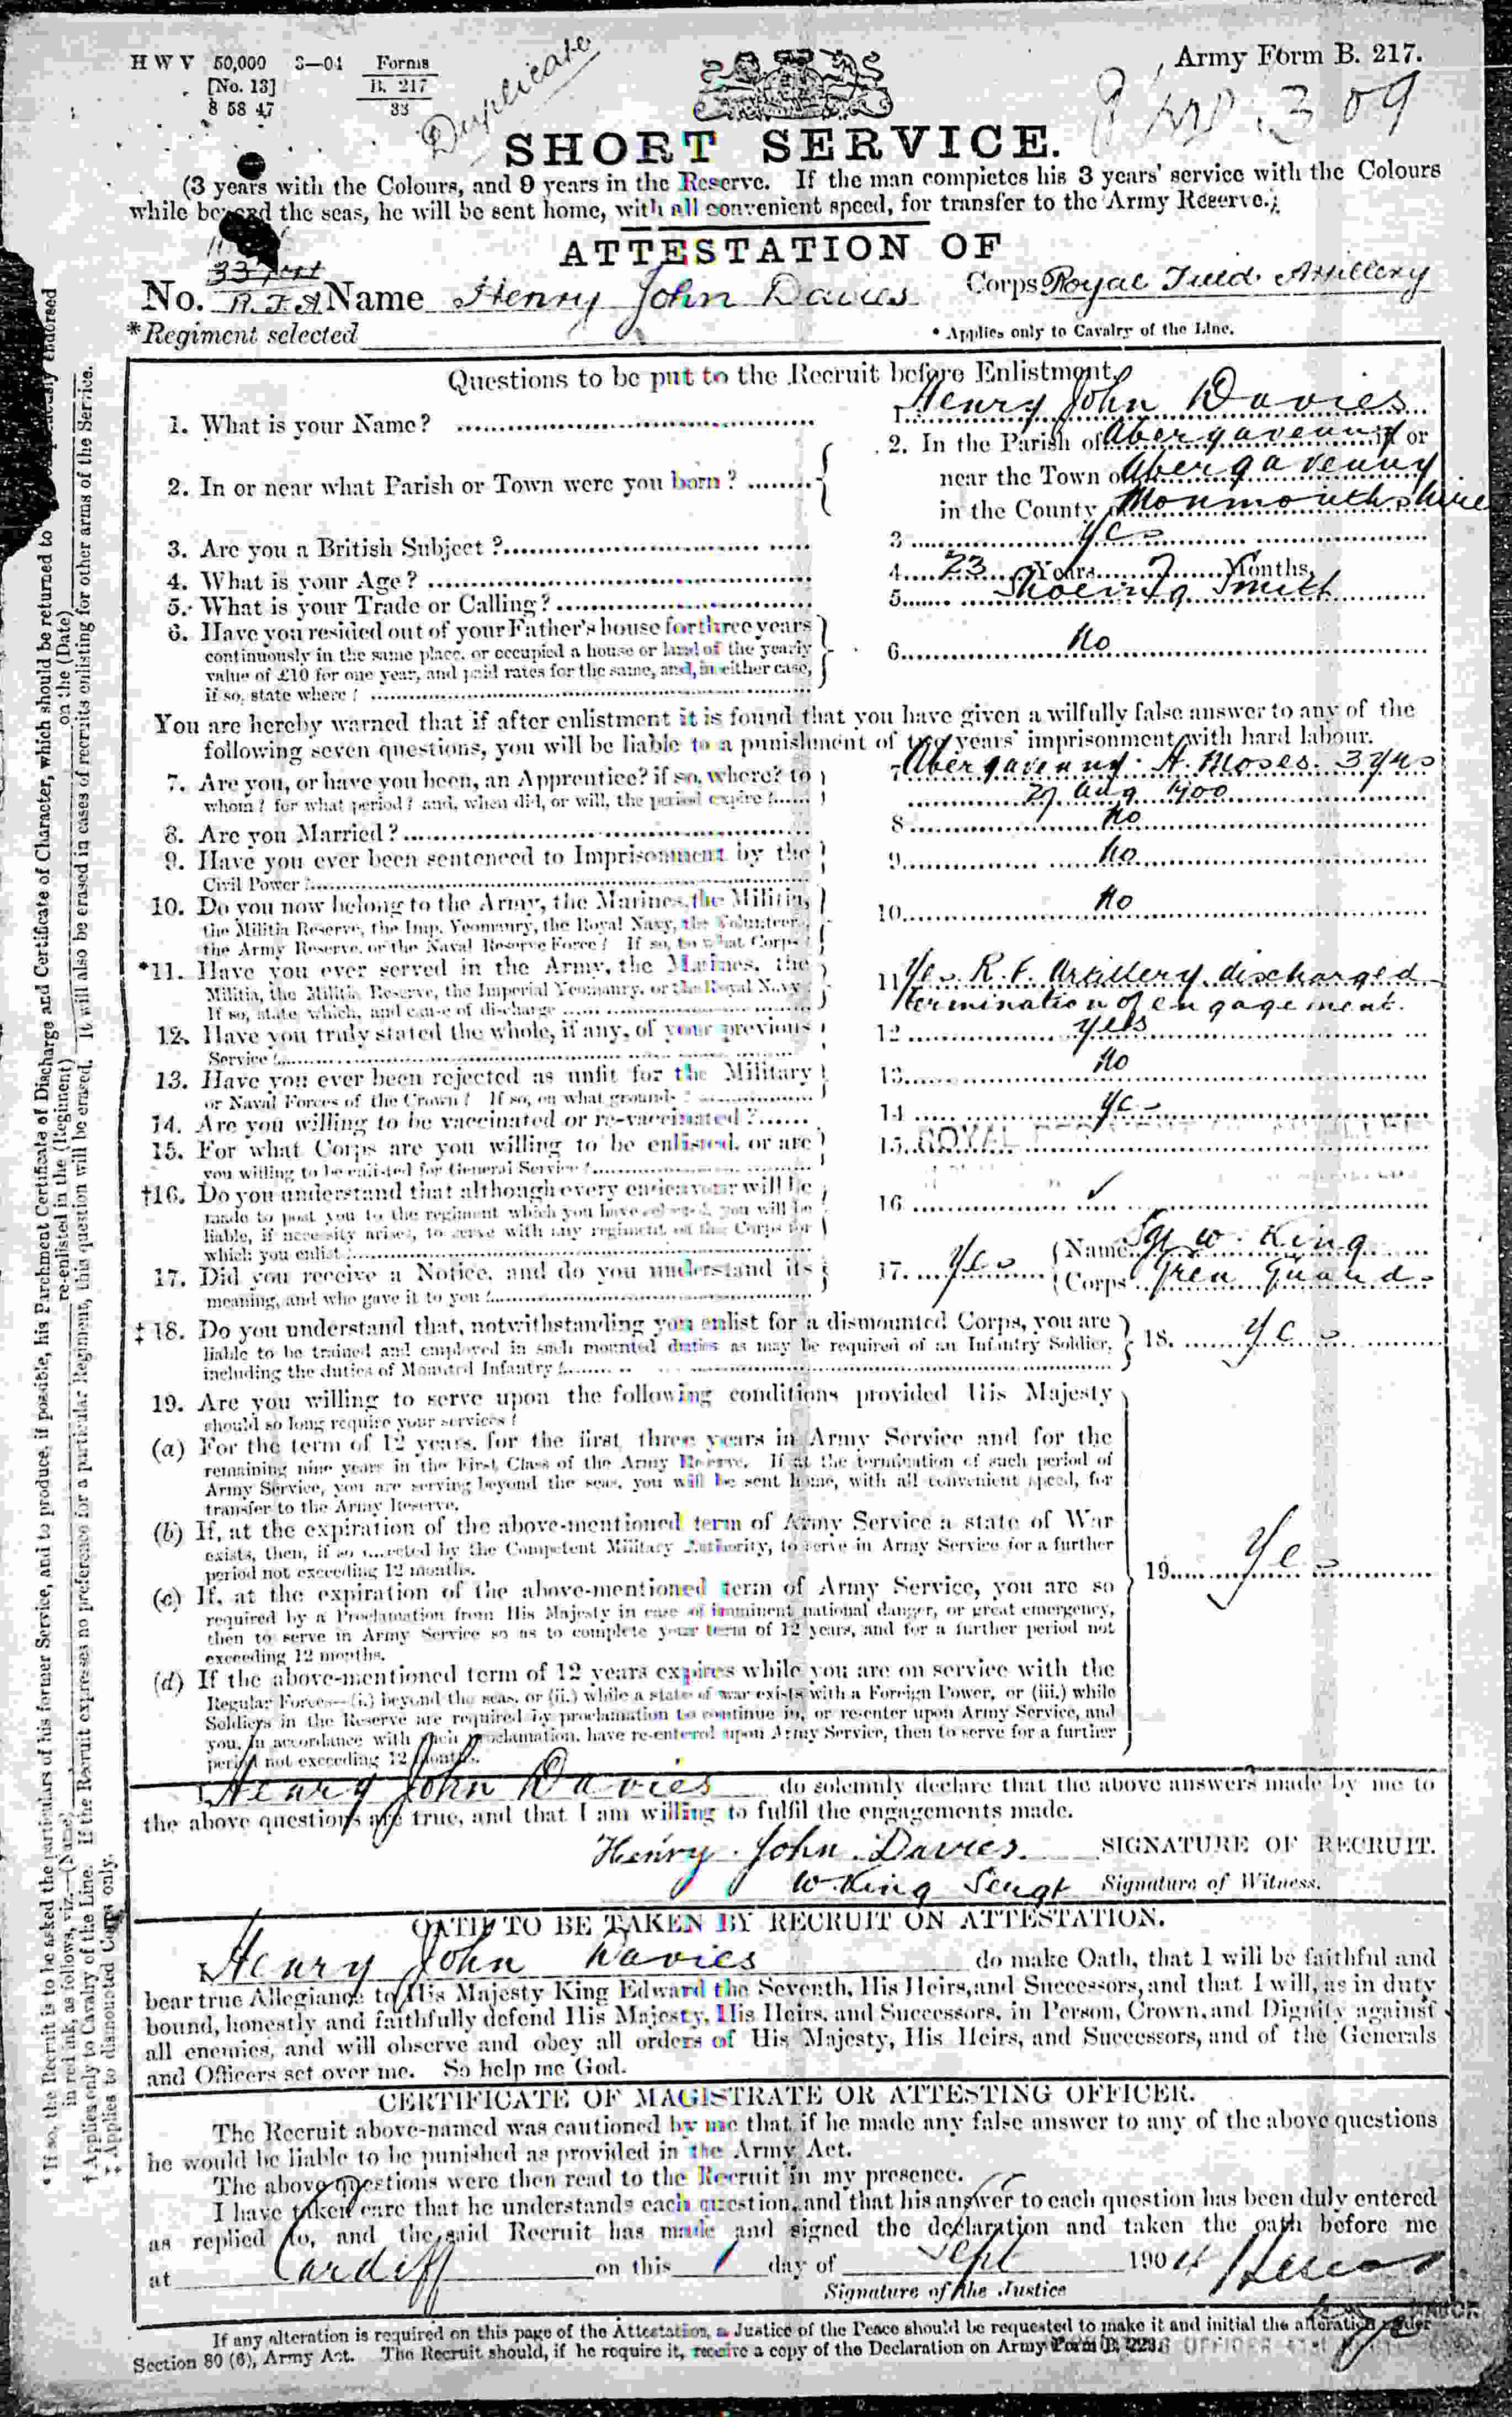 H W V 50,000 3—04 Forms
[No. 13] B. 217
8 58 47 33
Duplicate
Army Form B. 217.
SHORT SERVICE.
(3 years with the Colours, and 9 years in the Reserve. If the man completes his 3 years' service with the Colours
while beyond the seas, he will be sent home, with all convenient speed, for transfer to the Army Reserve.)
ATTESTATION OF
No. R.F.A Name Henry John Davies Corps Royal Field Artillery
*Regiment selected
* Applies only to Cavalry of the Line.
Questions to be put to the Recruit before Enlistment.
1. What is your Name? 1. Henry John Davies
2. In or near what Parish or Town were you born? 2. In the Parish of Abergavenny in or
near the Town of Abergavenny
in the County of Monmouthshire
3. Are you a British Subject? 3 Yes
4. What is your Age? 4. 23 Years 7 Months
5. What is your Trade or Calling? 5. Shoeing Smith
6. Have you resided out of your Father's house for three years
continuously in the same place, or occupied a house or land of the yearly
value of £10 for one year, and paid rates for the same, and, in either case,
if so, state where? 6. No
You are hereby warned that if after enlistment it is found that you have given a wilfully false answer to any of the
following seven questions, you will be liable to a punishment of two years' imprisonment with hard labour.
7. Are you, or have you been, an Apprentice? if so, where? to 7 Abergavenny. A. Moses. 3 yrs
whom? for what period? and, when did, or will, the period expire? 27 Aug 1900
8. Are you Married? 8 No
9. Have you ever been sentenced to Imprisonment by the 9 No
Civil Power?
10. Do you now belong to the Army, the Marines, the Militia, 10 No
the Militia Reserve, the Imp. Yeomanry, the Royal Navy, the Volunteers,
the Army Reserve, or the Naval Reserve Force? If so, to what Corps?
*11. Have you ever served in the Army, the Marines, the 11 Yes R. F. Artillery discharged
Militia, the Militia Reserve, the Imperial Yeomanry, or the Royal Navy? termination of engagement.
If so, state which, and cause of discharge
12. Have you truly stated the whole, if any, of your previous 12 Yes
Service?
13. Have you ever been rejected as unfit for the Military 13. No
or Naval Forces of the Crown? If so, on what grounds?
14. Are you willing to be vaccinated or re-vaccinated? 14 Yes
15. For what Corps are you willing to be enlisted, or are 15. ROYAL
you willing to be enlisted for General Service?
†16. Do you understand that although every endeavour will be 16 ✓
made to post you to the regiment which you have selected, you will be
liable, if necessity arises, to serve with any regiment of the Corps for
which you enlist?
17. Did you receive a Notice, and do you understand its 17. Yes Name Sgt W. King
meaning, and who gave it to you? Corps Gren Guards
‡18. Do you understand that, notwithstanding you enlist for a dismounted Corps, you are
liable to be trained and employed in such mounted duties as may be required of an Infantry Soldier, 18. Yes
including the duties of Mounted Infantry?
19. Are you willing to serve upon the following conditions provided His Majesty
should so long require your services?
(a) For the term of 12 years, for the first three years in Army Service and for the
remaining nine years in the First Class of the Army Reserve. If at the termination of such period of
Army Service, you are serving beyond the seas, you will be sent home, with all convenient speed, for
transfer to the Army Reserve.
(b) If, at the expiration of the above-mentioned term of Army Service a state of War
exists, then, if so directed by the Competent Military Authority, to serve in Army Service for a further
period not exceeding 12 months. 19 Yes
(c) If, at the expiration of the above-mentioned term of Army Service, you are so
required by a Proclamation from His Majesty in case of imminent national danger, or great emergency,
then to serve in Army Service so as to complete your term of 12 years, and for a further period not
exceeding 12 months.
(d) If the above-mentioned term of 12 years expires while you are on service with the
Regular Forces—(i.) beyond the seas, or (ii.) while a state of war exists with a Foreign Power, or (iii.) while
Soldiers in the Reserve are required by proclamation to continue in, or re-enter upon Army Service, and
you, in accordance with such proclamation, have re-entered upon Army Service, then to serve for a further
period not exceeding 12 months.
I, Henry John Davies do solemnly declare that the above answers made by me to
the above questions are true, and that I am willing to fulfil the engagements made.
Henry John Davies. SIGNATURE OF RECRUIT.
W. King Sergt Signature of Witness.
OATH TO BE TAKEN BY RECRUIT ON ATTESTATION.
I, Henry John Davies do make Oath, that I will be faithful and
bear true Allegiance to His Majesty King Edward the Seventh, His Heirs, and Successors, and that I will, as in duty
bound, honestly and faithfully defend His Majesty, His Heirs, and Successors, in Person, Crown, and Dignity against
all enemies, and will observe and obey all orders of His Majesty, His Heirs, and Successors, and of the Generals
and Officers set over me. So help me God.
CERTIFICATE OF MAGISTRATE OR ATTESTING OFFICER.
The Recruit above-named was cautioned by me that if he made any false answer to any of the above questions
he would be liable to be punished as provided in the Army Act.
The above questions were then read to the Recruit in my presence.
I have taken care that he understands each question, and that his answer to each question has been duly entered
as replied to, and the said Recruit has made and signed the declaration and taken the oath before me
at Cardiff on this 1 day of Sept 1904
Signature of the Justice
If any alteration is required on this page of the Attestation, a Justice of the Peace should be requested to make it and initial the alteration under
Section 80 (6), Army Act. The Recruit should, if he require it, receive a copy of the Declaration on Army Form B. 223.
* If so, the Recruit is to be asked the particulars of his former Service, and to produce, if possible, his Parchment Certificate of Discharge and Certificate of Character, which should be returned to endorsed
in red ink, as follows, viz.—(Name) re-enlisted in the (Regiment) on the (Date)
† Applies only to Cavalry of the Line. If the Recruit expresses no preference for a particular Regiment, this question will be erased. It will also be erased in cases of recruits enlisting for other arms of the Service.
‡ Applies to dismounted Corps only.